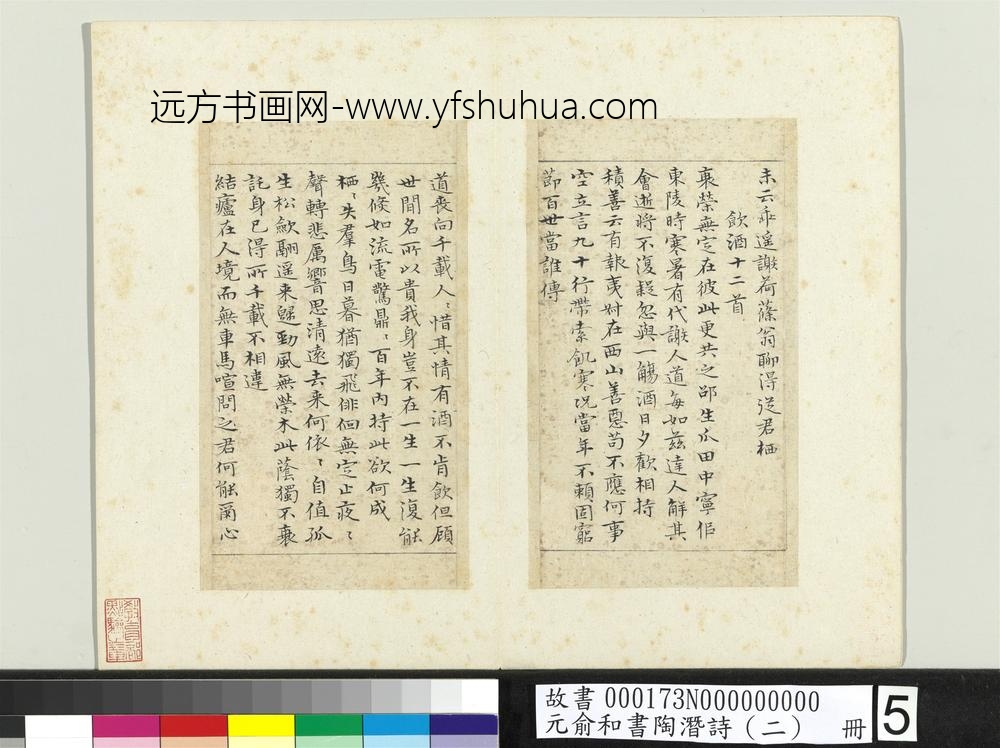 远方书画网-www.yfshuhua.com
耒云乖遥謝荷蓧翁聊得從君栖
飲酒十二首
衰榮無定在彼此更共之邵生瓜田中寧似
東陵時寒暑有代謝人道每如茲達人解其
會逝將不復疑忽與一觴酒日夕歡相持
積善云有報夷叔在西山善惡苟不應何事
空立言九十行帶索飢寒況當年不賴固窮
節百世當誰傳
道喪向千載人〻惜其情有酒不肯飲但顧
世間名所以貴我身豈不在一生一生復能
幾倏如流電驚鼎〻百年內持此欲何成
栖〻失羣鳥日暮猶獨飛徘徊無定止夜〻
聲轉悲厲響思清遠去来何依〻自值孤
生松歛翮遥来歸勁風無榮木此蔭獨不衰
託身已得所千載不相違
結廬在人境而無車馬喧問之君何能爾心
故書 000173N000000000
元俞和書陶潛詩(二) 冊 5